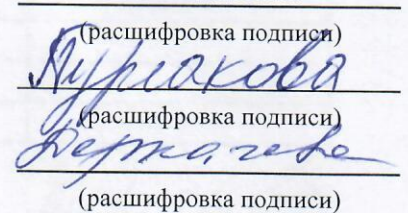 (расшифровка подписи)
Пурлакова
(расшифровка подписи)
Держачева
(расшифровка подписи)